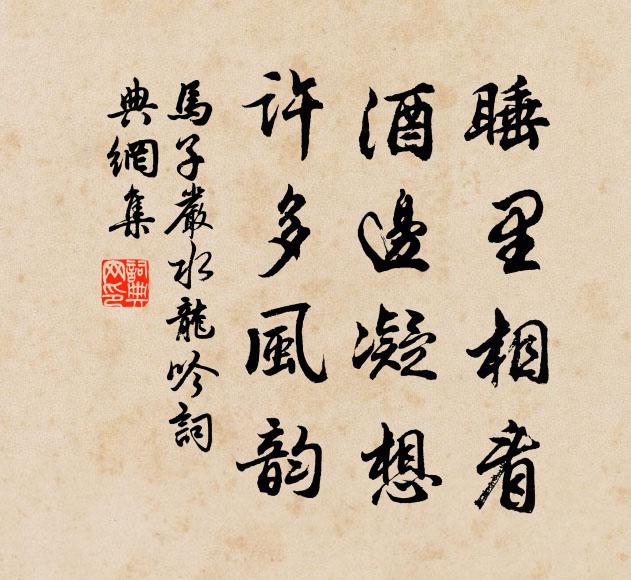 睡里相看
酒邊凝想
許多風韵
馬子嚴水龍吟詞
典網集
詞典
网印